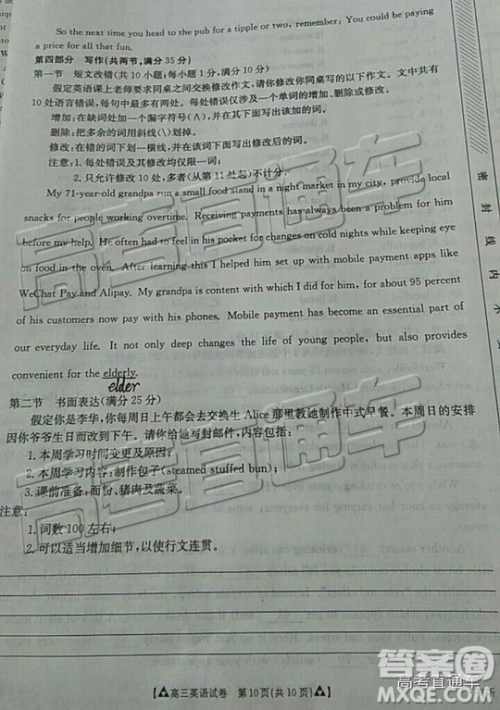 So the next time you head to the pub for a tipple or two, remember: You could be paying
a price for all that fun.
第四部分 写作(共两节,满分 35 分)
第一节 短文改错(共 10 小题;每小题 1 分,满分 10 分)
假定英语课上老师要求同桌之间交换修改作文,请你修改你同桌写的以下作文。文中共有
10 处语言错误,每句中最多有两处。每处错误仅涉及一个单词的增加、删除或修改。
增加:在缺词处加一个漏字符号(∧),并在其下面写出该加的词。
删除:把多余的词用斜线(\)划掉。
修改:在错的词下划一横线,并在该词下面写出修改后的词。
注意:1. 每处错误及其修改均仅限一词;
2. 只允许修改 10 处,多者(从第 11 处起)不计分。
My 71-year-old grandpa run a small food stand in a night market in my city, provide local
snacks for people working overtime. Receiving payments has always been a problem for him
before my help. He often had to feel in his pocket for changes on cold nights while keeping eye
on food in the oven. After learning this I helped him set up with mobile payment apps like
WeChat Pay and Alipay. My grandpa is content with which I did for him, for about 95 percent
of his customers now pay with his phones. Mobile payment has become an essential part of
our everyday life. It not only deep changes the life of young people, but also provides
convenient for the elderly.
elder
第二节 书面表达(满分 25 分)
假定你是李华,你每周日上午都会去交换生 Alice 那里教她制作中式早餐。本周日的安排
因你爷爷生日而改到下午。请你给她写封邮件,内容包括:
1. 本周学习时间变更及原因;
2. 本周学习内容:制作包子(steamed stuffed bun);
3. 课前准备:面粉、猪肉及蔬菜。
注意:
1. 词数 100 左右;
2. 可以适当增加细节,以使行文连贯。
【高三英语试卷 第 10 页(共 10 页)】
高考直通车
高考直通车
密封线内不
答案圈
MXQE.COM
高考直通车